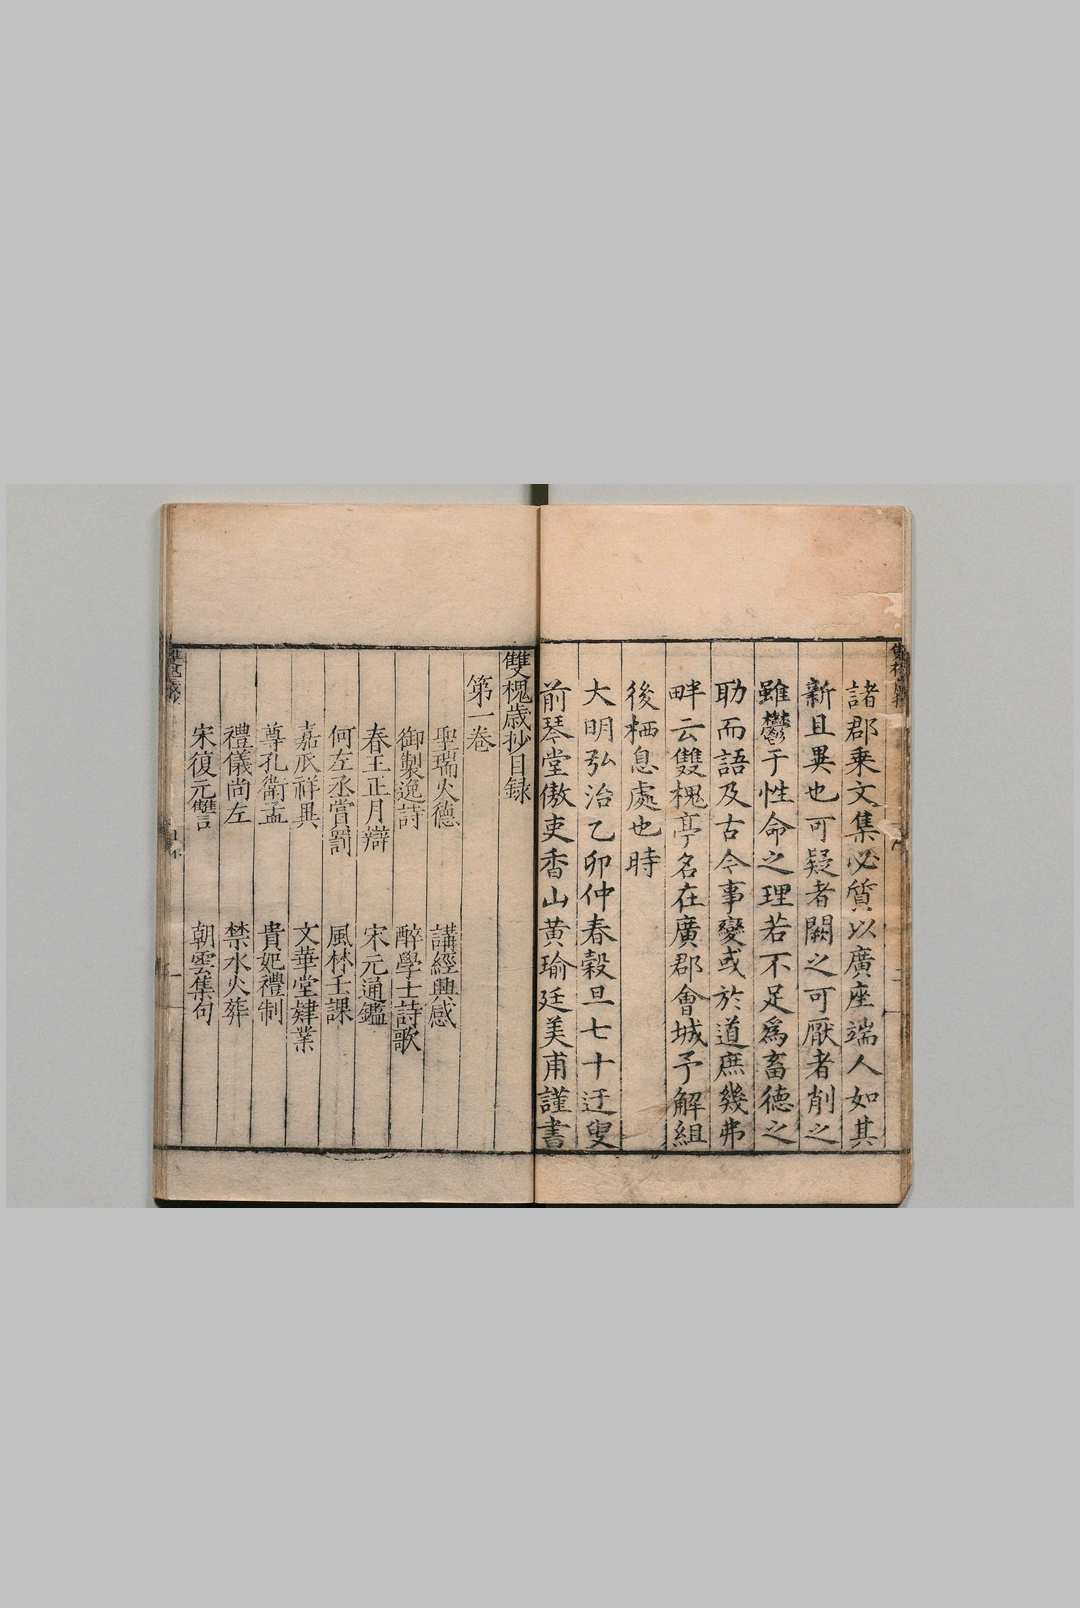 諸郡乗文集必質以廣座端人如其
新且異也可疑者闕之可厭者削之
雖鬱于性命之理若不足爲畜德之
助而語及古今事變或於道庶幾弗
畔云雙槐亭名在廣郡會城予解組
後栖息處也時
大明弘治乙卯仲春穀旦七十迂叟
前琴堂傲吏香山黄瑜廷美甫謹書
雙槐歳抄目録
第一卷
聖瑞火德 講經興感
御製逸詩 醉學士詩歌
春王正月辯 宋元通鑑
何左丞賞罰 風林壬課
嘉瓜祥異 文華堂肄業
尊孔衛孟 貴妃禮制
禮儀尚左 禁水火葬
宋復元讐 朝雲集句